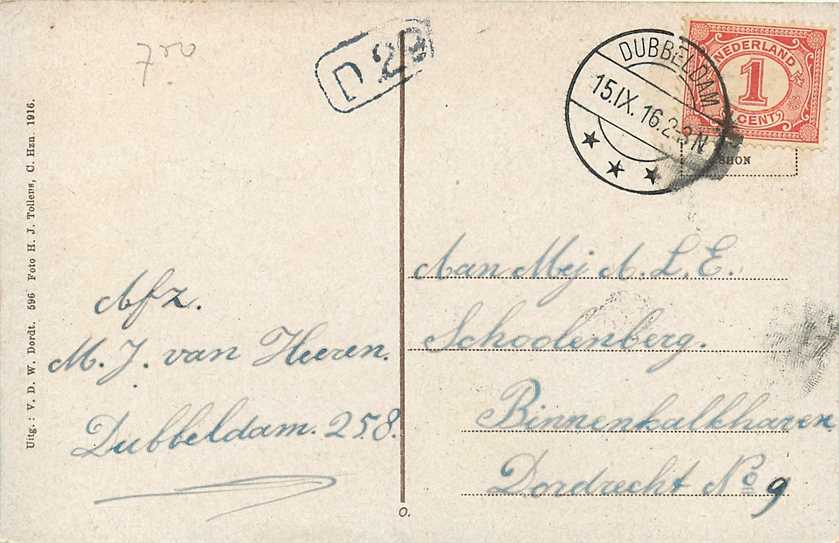 700
D 2
DUBBELDAM
15.IX.16.2-3N
NEDERLAND
1
CENT
SHON
Uitg.: V. D. W. Dordt. 596 Foto H. J. Tollens, C. Hzn 1916.
Afz.
M. J. van Heeren.
Dubbeldam. 258.
Aan Mej A. L. E.
Schoolenberg.
Binnenkalkhaven
Dordrecht No 9
O.